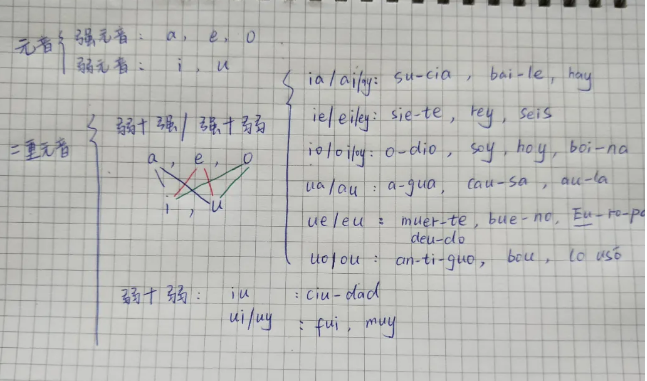 元音 强元音: a, e, o
弱元音: i, u
二重元音
弱+强/强+弱
a, e, o
i, u
ia/ai/ay: su-cia, bai-le, hay
ie/ei/ey: sie-te, rey, seis
io/oi/oy: o-dio, soy, hoy, boi-na
ua/au: a-gua, cau-sa, au-la
ue/eu: muer-te, bue-no, Eu-ro-pa
deu-do
uo/ou: an-ti-guo, bou, lo usó
弱+弱: iu : ciu-dad
ui/uy : fui, muy